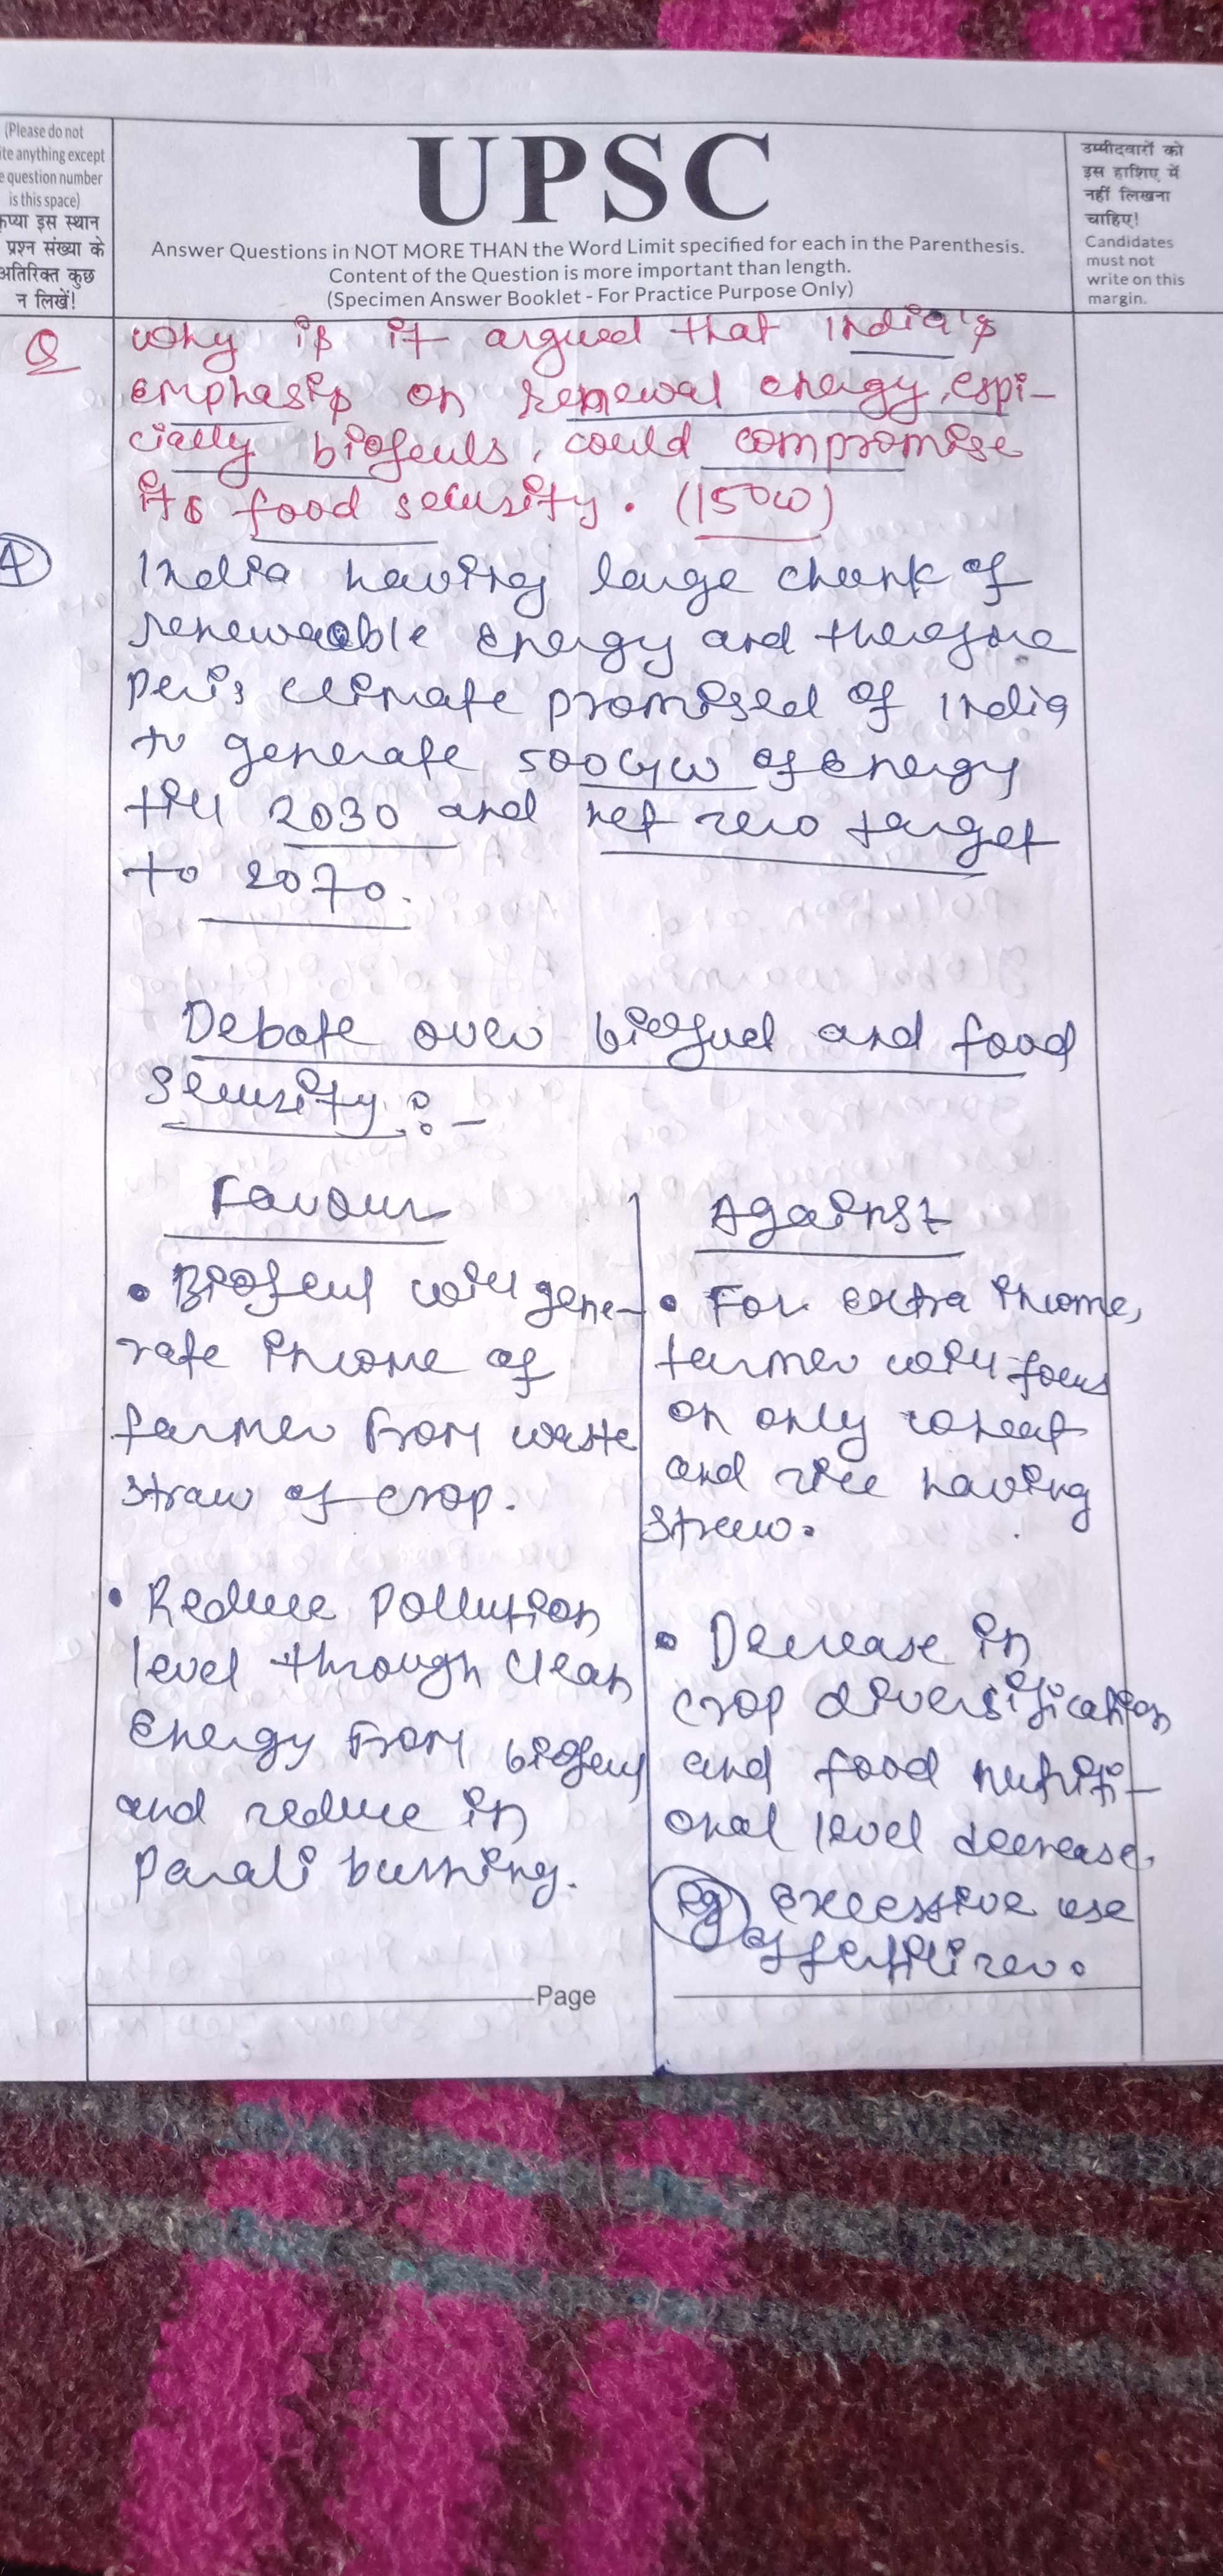 (Please do not
ite anything except
e question number
is this space)
कृप्या इस स्थान
प्रश्न संख्या के
अतिरिक्त कुछ
न लिखें!
UPSC
Answer Questions in NOT MORE THAN the Word Limit specified for each in the Parenthesis.
Content of the Question is more important than length.
(Specimen Answer Booklet - For Practice Purpose Only)
उम्मीदवारों को
इस हाशिए में
नहीं लिखना
चाहिए!
Candidates
must not
write on this
margin.
Q why is it argued that India's
emphasis on renewal energy, espi-
cially biofeuls, could compromise
its food security. (150W)
A India having large chunk of
renewable energy and therefore
Peris climate promised of India
to generate 500GW of energy
till 2030 and net zero target
to 2070.
Debate over biofuel and food
security :-
Favour
• Biofeul will gene-
rate income of
farmer from waste
straw of crop.
• Reduce pollution
level through clean
energy from biofeul
and reduce in
Parali burning.
Against
• For extra income,
farmer will focus
on only wheat
and rice having
straw.
• Decrease in
crop diversification
and food nutriti-
onal level decrease.
eg excessive use
of fertilizer.
Page